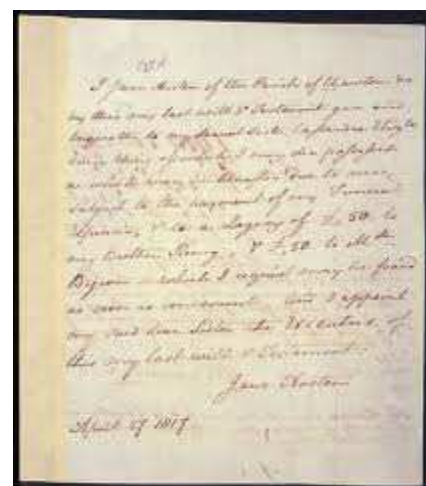 I Jane Austen of the Parish of Chawton do
by this my last will & Testament give and
bequeath to my dearest Sister Cassandra Eliz:th
every thing of which I may die possessed
or which may be hereafter due to me,
subject to the payment of my Funeral
Expences, & to a Legacy of £50. to
my Brother Henry, & £50. to M:de
Bigeon which I request may be paid
as soon as convenient. And I appoint
my said dear Sister the Executrix of
this my last will & Testament.
Jane Austen
April 27 1817